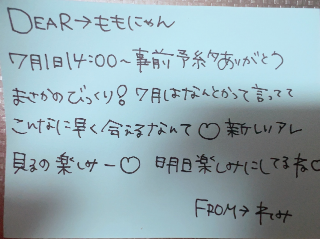 DEAR→ももにゃん
7月1日14:00~事前予約ありがとう
まさかのびっくり!7月はなんとかって言ってて
こんなに早く会えるなんて♡新しいアレ
見るの楽しみー♡ 明日楽しみにしてるね♡
FROM→れみ